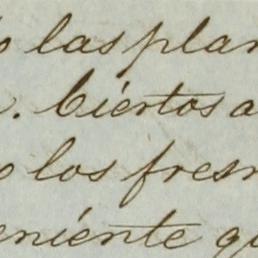 o las plan
. Ciértos a
o los fres
eniénte qu